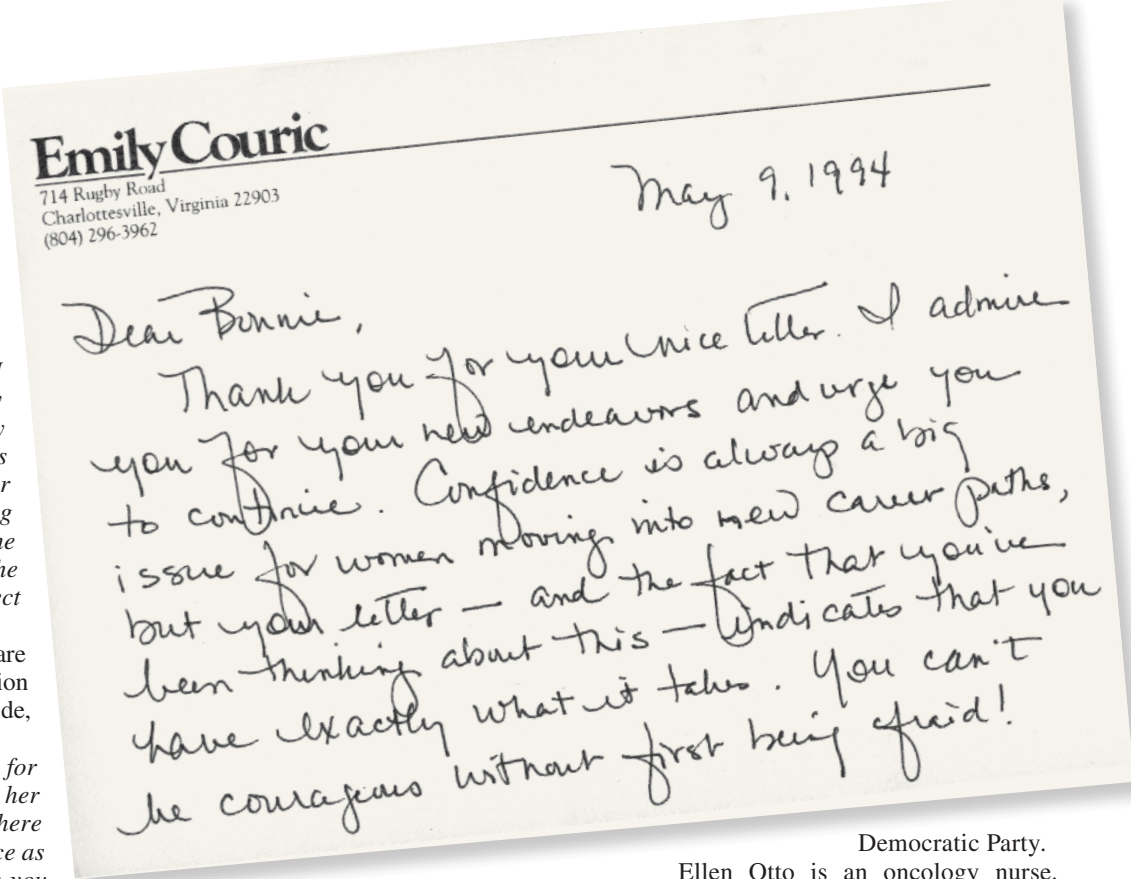 Emily Couric
714 Rugby Road
Charlottesville, Virginia 22903
(804) 296-3962
May 9, 1994
Dear Bonnie,
Thank you for your nice letter. I admire
you for your new endeavors and urge you
to continue. Confidence is always a big
issue for women moving into new career paths,
but your letter — and the fact that you've
been thinking about this — indicates that you
have exactly what it takes. You can't
be courageous without first being afraid!
are
de,
for
her
ce as
you
Democratic Party.
Ellen Otto is an oncology nurse.